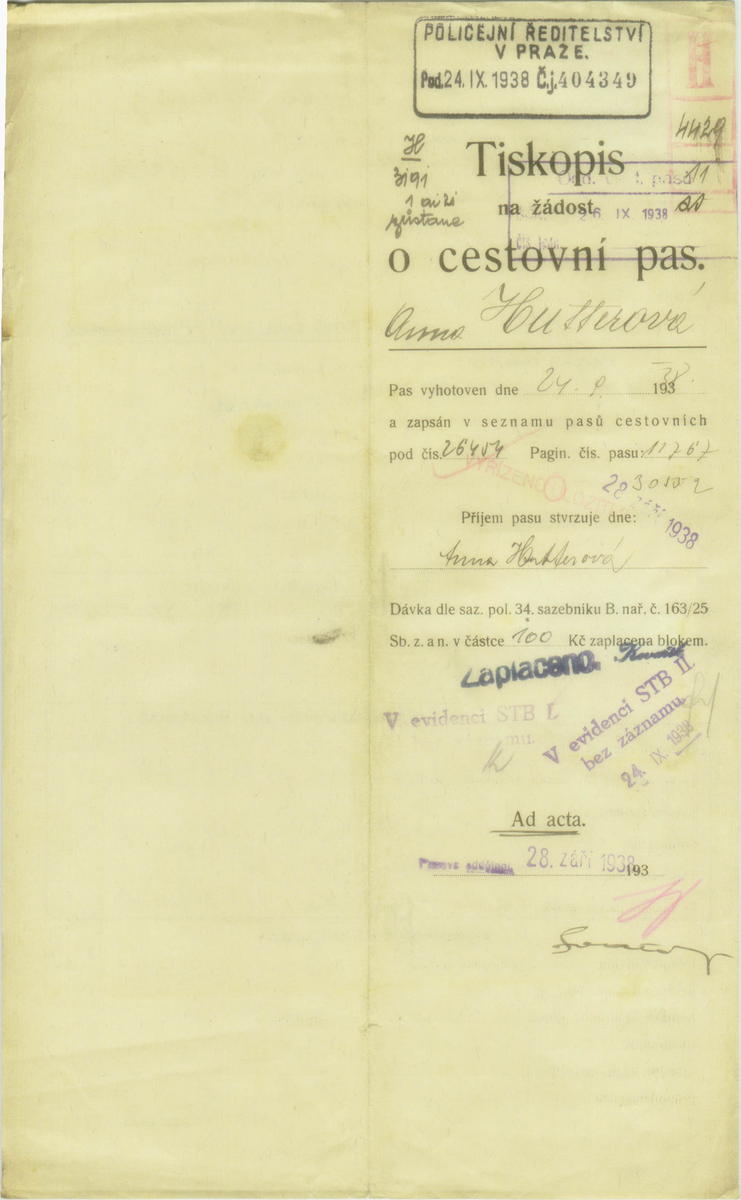 POLICEJNÍ ŘEDITELSTVÍ
V PRAZE.
Pod. 24. IX. 1938 Č.j. 404349
4429
11
H
Tiskopis
na žádost
26 IX 1938
o cestovní pas.
Anna Hutterová
Pas vyhotoven dne 24. 9. 1938.
a zapsán v seznamu pasů cestovních
pod čís. 26454 Pagin. čís. pasu: 11767
VYŘÍZENO
28 září 1938
Příjem pasu stvrzuje dne:
Anna Hutterová
Dávka dle saz. pol. 34. sazebníku B. nař. č. 163/25
Sb. z. a n. v částce 100 Kč zaplacena blokem.
Zaplaceno.
V evidenci STB I.
V evidenci STB II.
bez záznamu.
24. IX. 1938
Ad acta.
28. září 1938 193